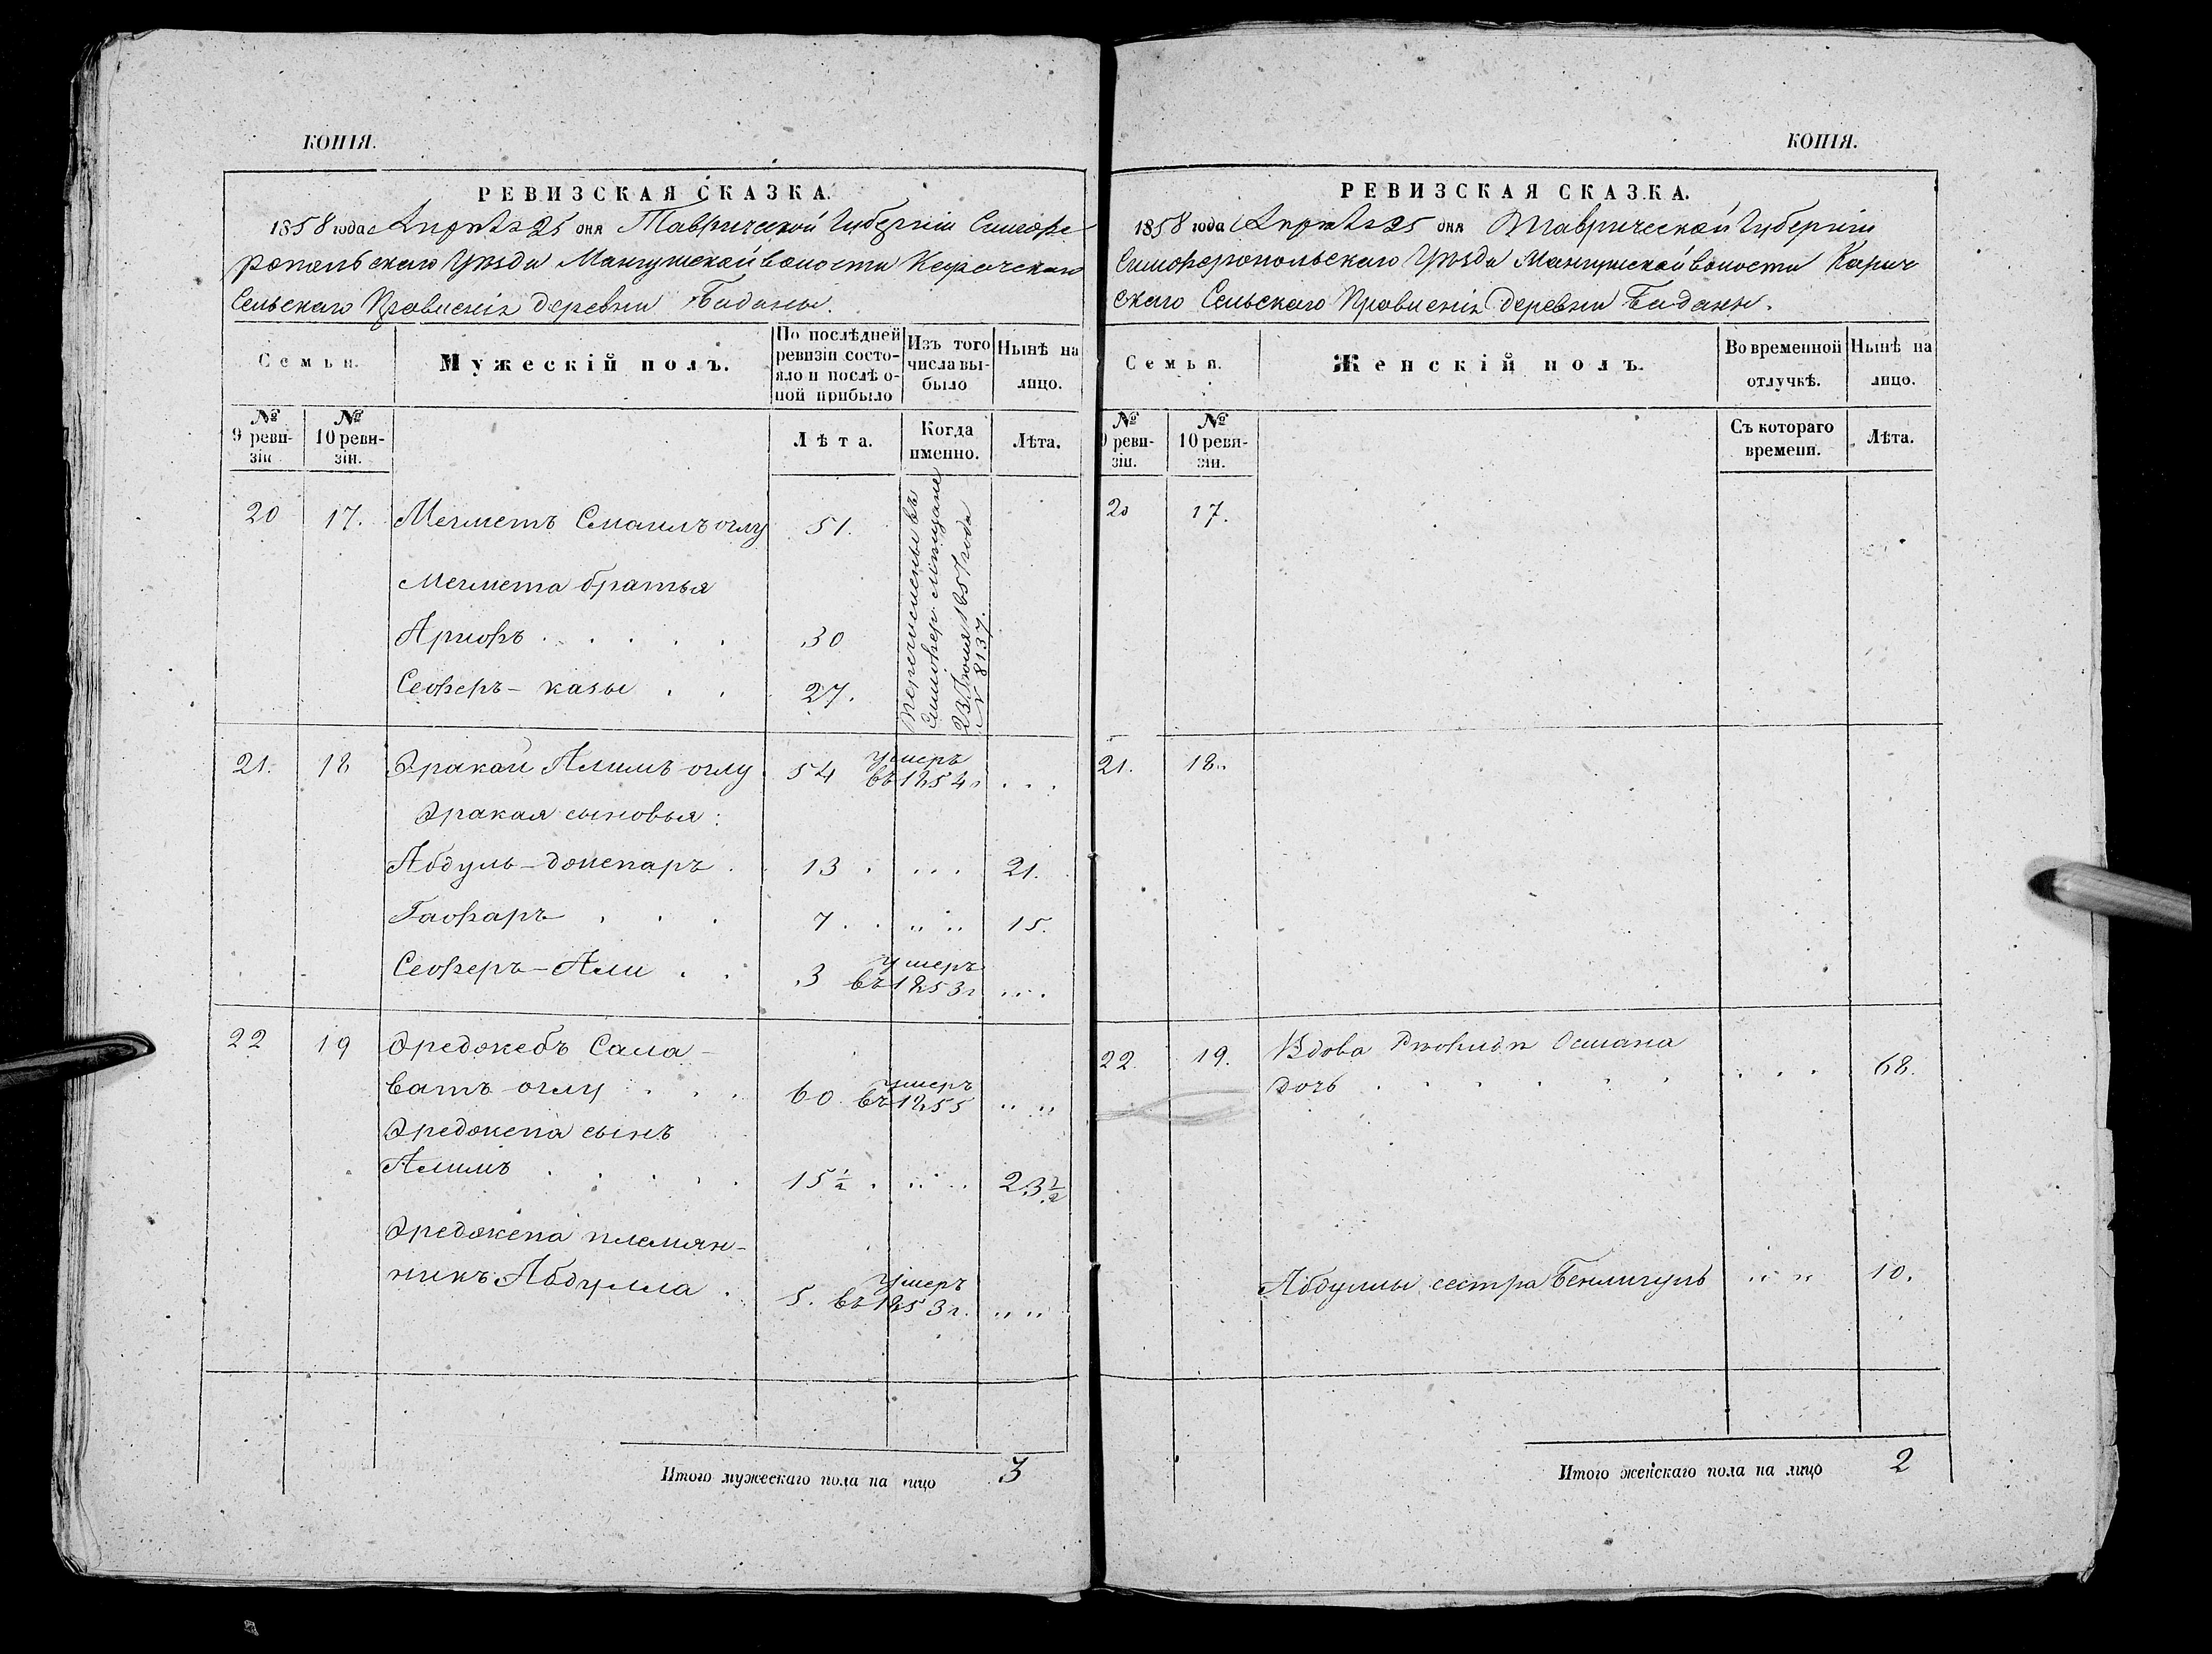 КОПІЯ.
РЕВИЗСКАЯ СКАЗКА.
1858 года Апрѣля 25 дня Таврической Губерніи Симфе-
ропольскаго Уѣзда Мангушской волости
Сельскаго Правленія деревни Бадана.
Семьи.
Мужескій полъ.
По послѣдней ревизіи состо-
яло и послѣ о-
ной прибыло
Изъ того
числа вы-
было
Нынѣ на
лицо.
№
9 реви-
зіи
№
10 реви-
зіи.
Лѣта.
Когда
именно.
Лѣта.
20 17. Мегметъ Смаилъ оглу 51.
Перечислены въ
Симфер. Мѣщане
23 Іюля 1857 года
№ 8137.
Мегмета братья
Арифъ . . . . . 30
Сеферъ-казы . . 27.
21. 18 Эракай Алимъ оглу 54 умеръ
въ 1854 г. . . .
Эракая сыновья:
Абдуль-джепаръ . 13 . . . . 21.
Гафаръ . . . 7 . . „ „ 15.
Сеферъ-Али . . 3 умеръ
въ 1853 г. . . .
22 19 Эреджебъ Сала-
ватъ оглу . . . 60 умеръ
въ 1855 „ „
Эреджепа сынъ
Алимъ . . . . . 15½ . . . . 23½
Эреджепа племян-
никъ Абдулла . 5. умеръ
въ 1853 г. „ „
Итого мужескаго пола на лицо 3
КОПІЯ.
РЕВИЗСКАЯ СКАЗКА.
1858 года Апрѣля 25 дня Таврической Губерніи
Симферопольскаго Уѣзда Мангушской волости Карач
скаго Сельскаго Правленія деревни Бадана.
Семьи.
Женскій полъ.
Во временной
отлучкѣ.
Нынѣ на
лицо.
№
9 реви-
зіи.
№
10 реви-
зіи.
Съ котораго
времени.
Лѣта.
20 17.
21. 18.
22. 19. Вдова Османа
дочь . . . . . . . . . . 68.
Абдуллы сестра Бенлигуль „ „ 10.
Итого женскаго пола на лицо 2